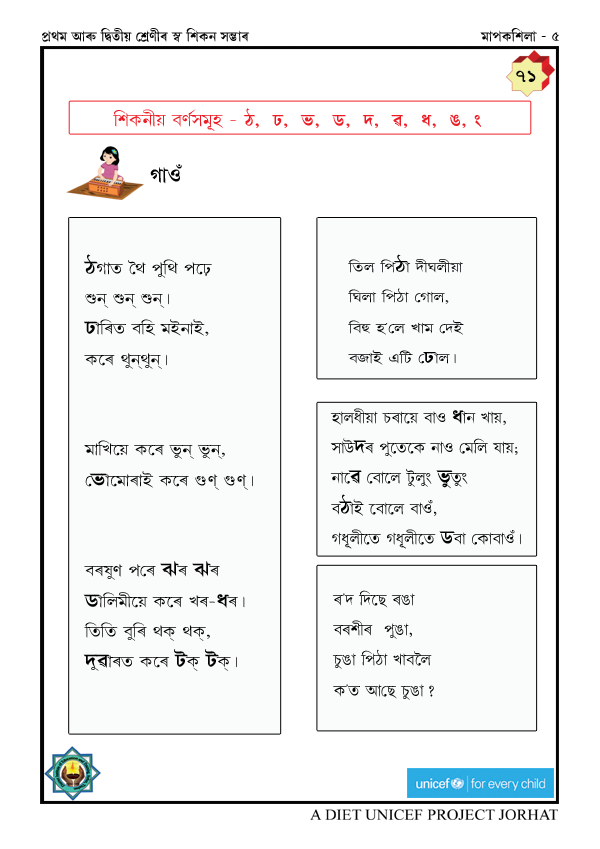 প্ৰথম আৰু দ্বিতীয় শ্ৰেণীৰ স্ব শিকন সম্ভাৰ
মাপকশিলা - ৫
৭১
শিকনীয় বৰ্ণসমূহ - ঠ, ঢ, ভ, ড, দ, ৱ, ধ, ঙ, ং
গাওঁ
ঠগাত থৈ পুথি পঢ়ে
শুন্ শুন্ শুন্।
ঢাৰিত বহি মইনাই,
কৰে থুন্থুন্।
মাখিয়ে কৰে ভুন্ ভুন্,
ভোমোৰাই কৰে গুণ্ গুণ্।
বৰষুণ পৰে ঝৰ ঝৰ
ডালিমীয়ে কৰে খৰ-ধৰ।
তিতি বুৰি থক্ থক্,
দুৱাৰত কৰে টক্ টক্।
তিল পিঠা দীঘলীয়া
ঘিলা পিঠা গোল,
বিহু হ'লে খাম দেই
বজাই এটি ঢোল।
হালধীয়া চৰায়ে বাও ধান খায়,
সাউদৰ পুতেকে নাও মেলি যায়;
নাৱে বোলে টুলুং ভুতুং
বঠাই বোলে বাওঁ,
গধূলীতে গধূলীতে ডবা কোবাওঁ।
ৰ'দ দিছে ৰঙা
বৰশীৰ পুঙা,
চুঙা পিঠা খাবলৈ
ক'ত আছে চুঙা ?
unicef for every child
A DIET UNICEF PROJECT JORHAT